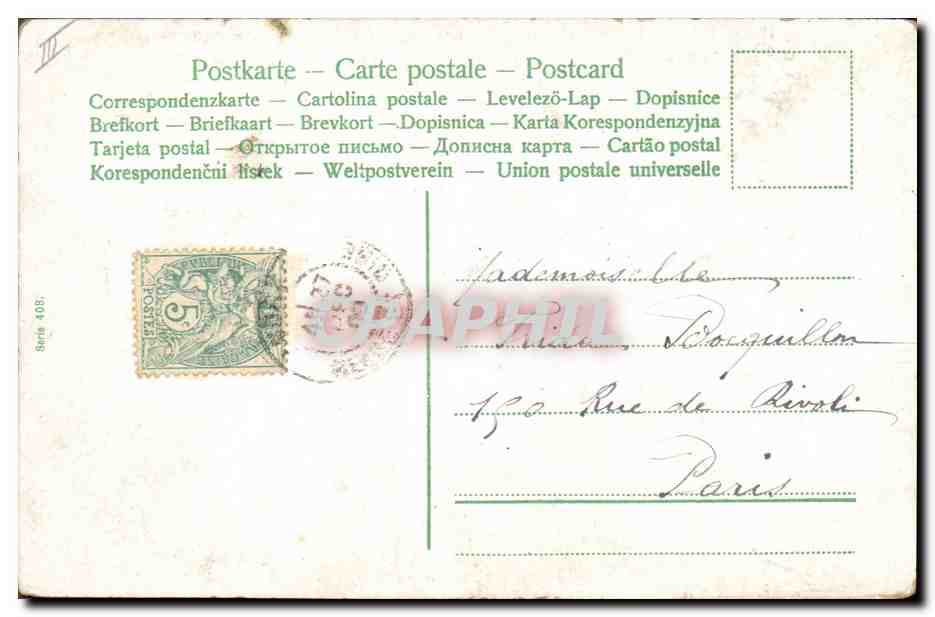 III
Postkarte -- Carte postale — Postcard
Correspondenzkarte — Cartolina postale — Levelező-Lap — Dopisnice
Brefkort — Briefkaart — Brevkort — Dopisnica — Karta Korespondenzyjna
Tarjeta postal — Открытое письмо — Дописна карта — Cartão postal
Korespondenčni listek — Weltpostverein — Union postale universelle
Serie 408.
5c
POSTES
CPAPHIL
Mademoiselle
Bocquillon
150 Rue de Rivoli
Paris